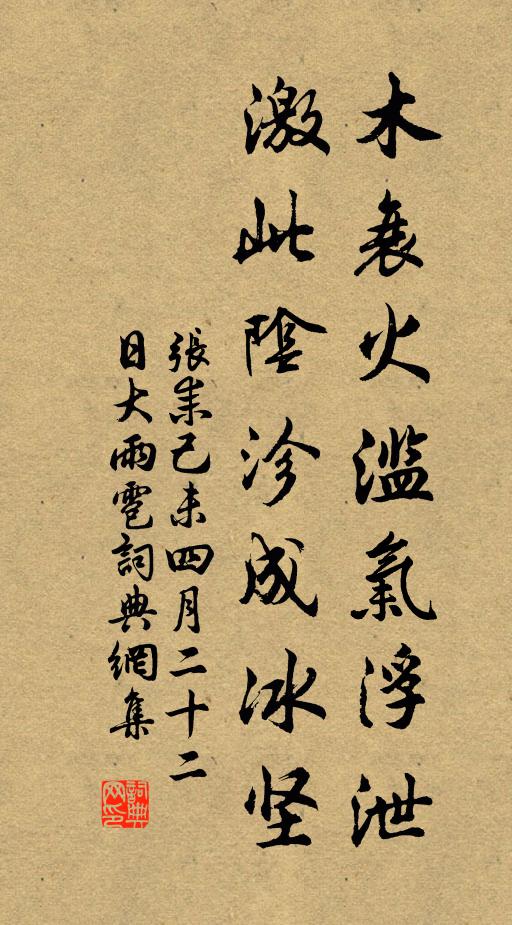 木衰火滥氣浮泄
激此陰沴成冰坚
張耒己未四月二十二
日大雨雹詞典網集
詞典
网印